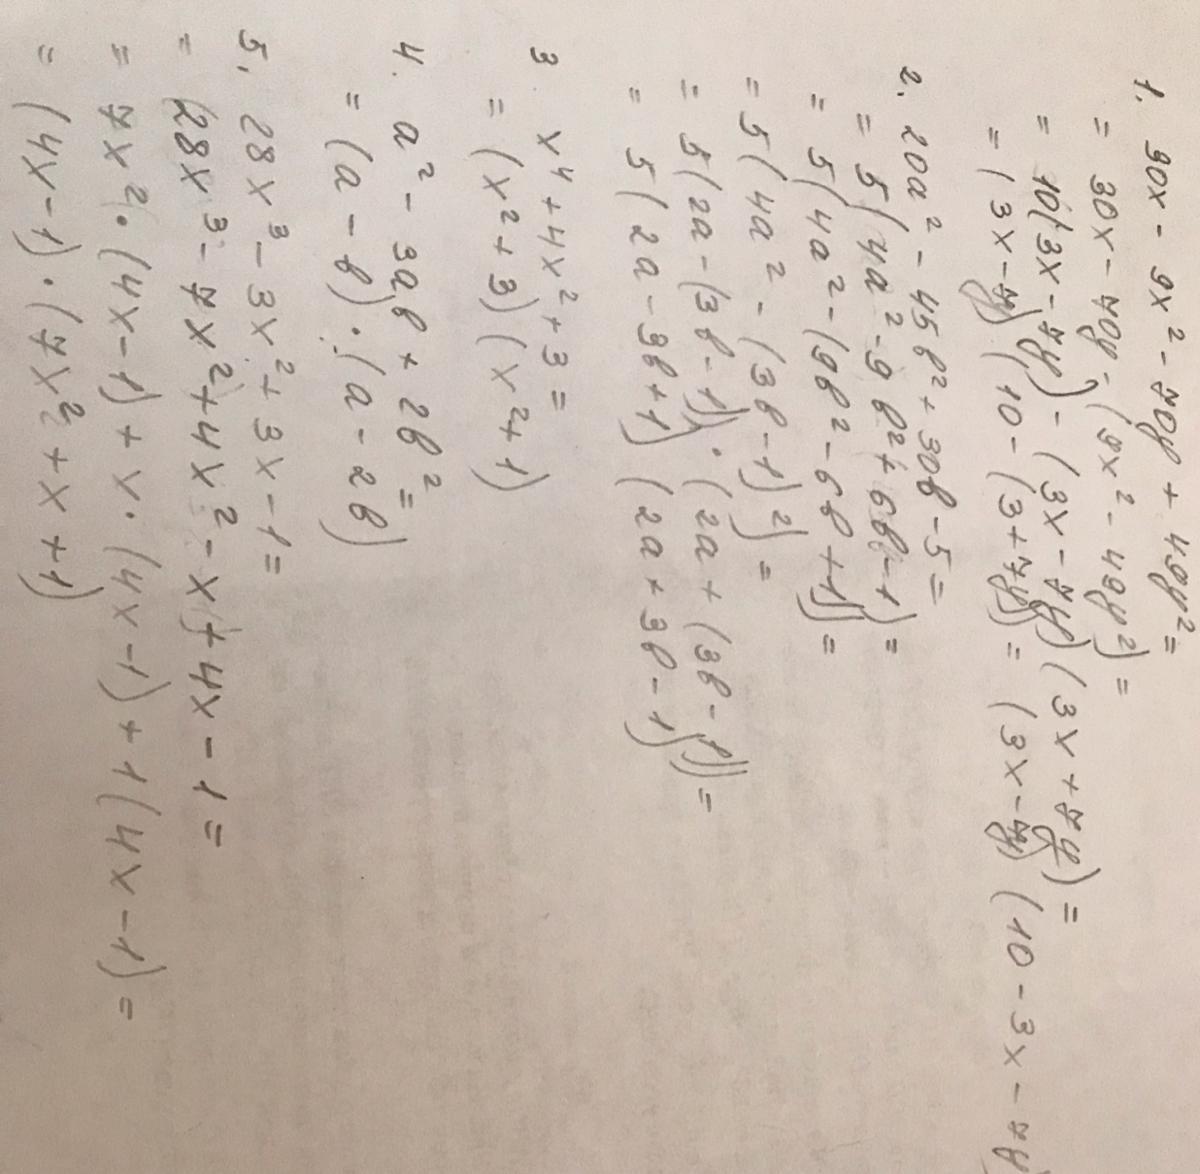 1. 30x - 9x² - 70y + 49y² =
= 30x - 70y - (9x² - 49y²) =
= 10(3x - 7y) - (3x - 7y)(3x + 7y) =
= (3x - 7y)(10 - (3 + 7y)) = (3x - 7y)(10 - 3x - 7y
2. 20a² - 45b² + 30b - 5 =
= 5(4a² - 9b² + 6b - 1) =
= 5(4a² - (9b² - 6b + 1)) =
= 5(4a² - (3b - 1)²) =
= 5(2a - (3b - 1)) · (2a + (3b - 1)) =
= 5(2a - 3b + 1)(2a + 3b - 1)
3 x⁴ + 4x² + 3 =
= (x² + 3)(x² + 1)
4. a² - 3ab + 2b² =
= (a - b) · (a - 2b)
5. 28x³ - 3x² + 3x - 1 =
= (28x³ - 7x² + 4x² - x) + 4x - 1 =
= 7x² · (4x - 1) + x · (4x - 1) + 1(4x - 1) =
= (4x - 1) · (7x² + x + 1)